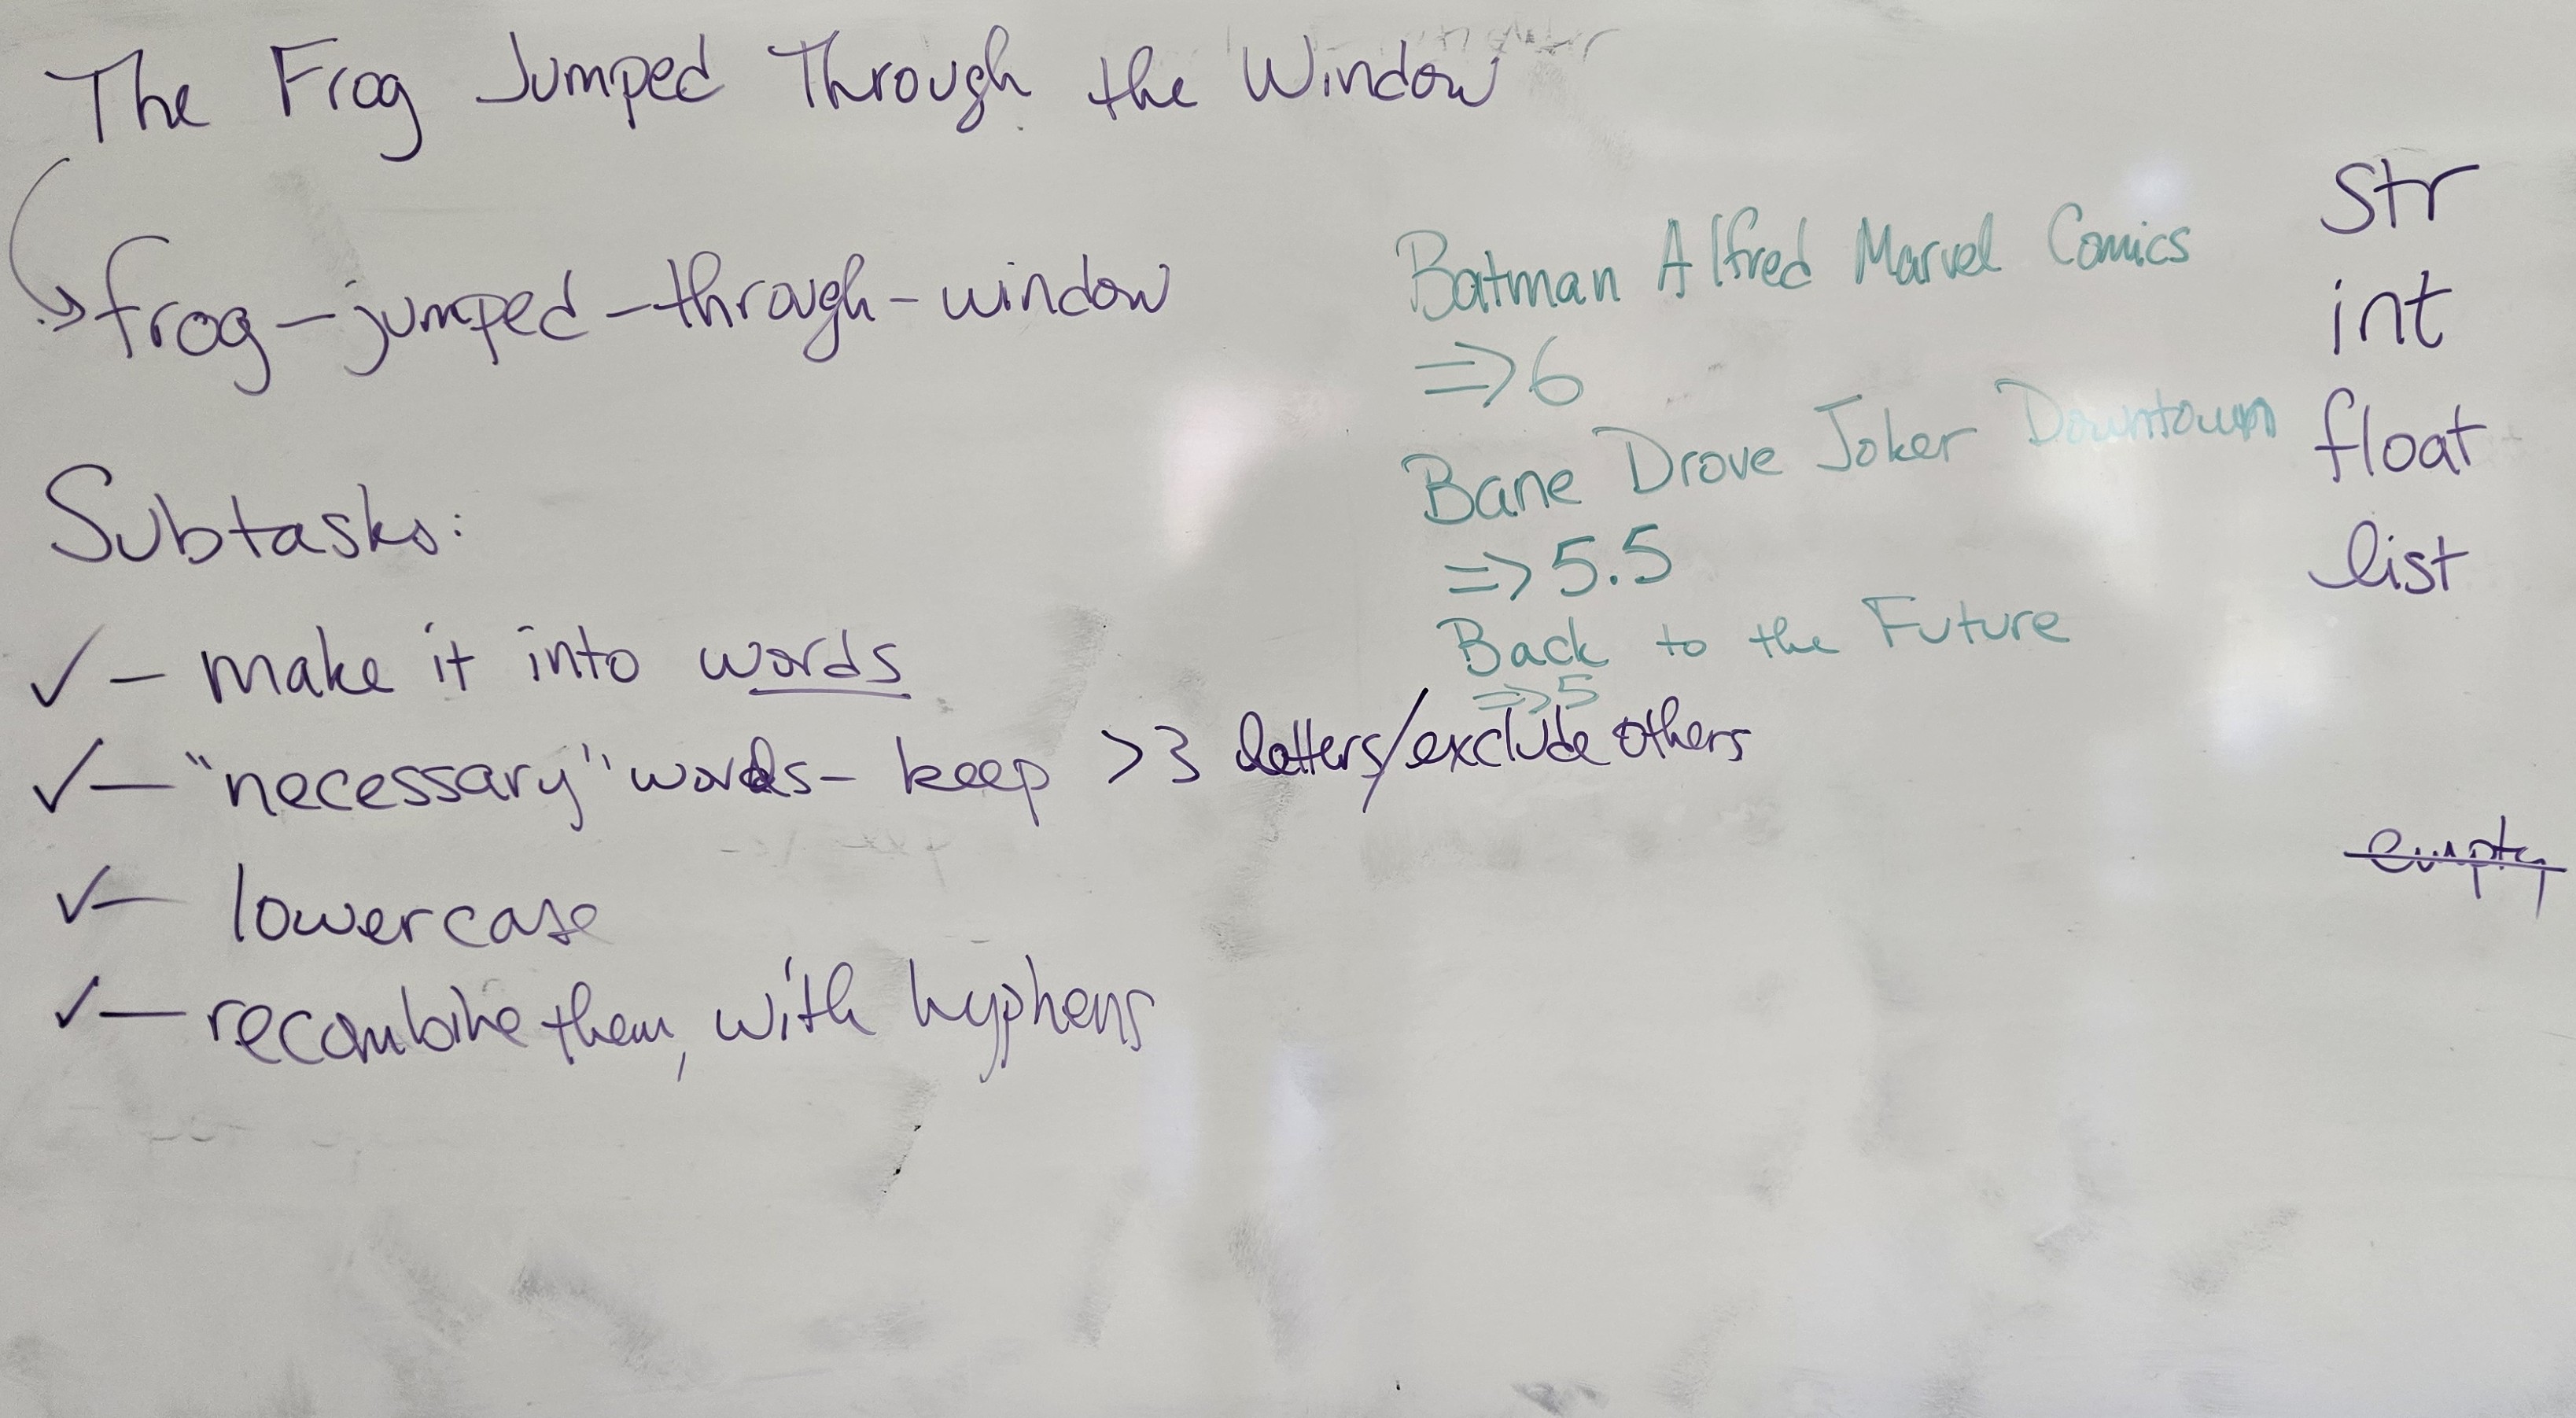 The Frog Jumped Through the Window
frog-jumped-through-window
Subtasks:
✓ - make it into words
✓ - "necessary" words - keep >3 letters/exclude others
✓ - lowercase
✓ - recombine them, with hyphens
Batman Alfred Marvel Comics
=> 6
Bane Drove Joker Downtown
=> 5.5
Back to the Future
=> 5
str
int
float
list
empty